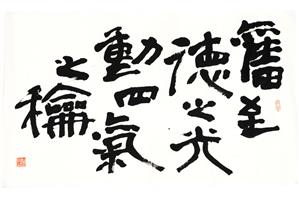 奮至
德之光
動四氣
之龢